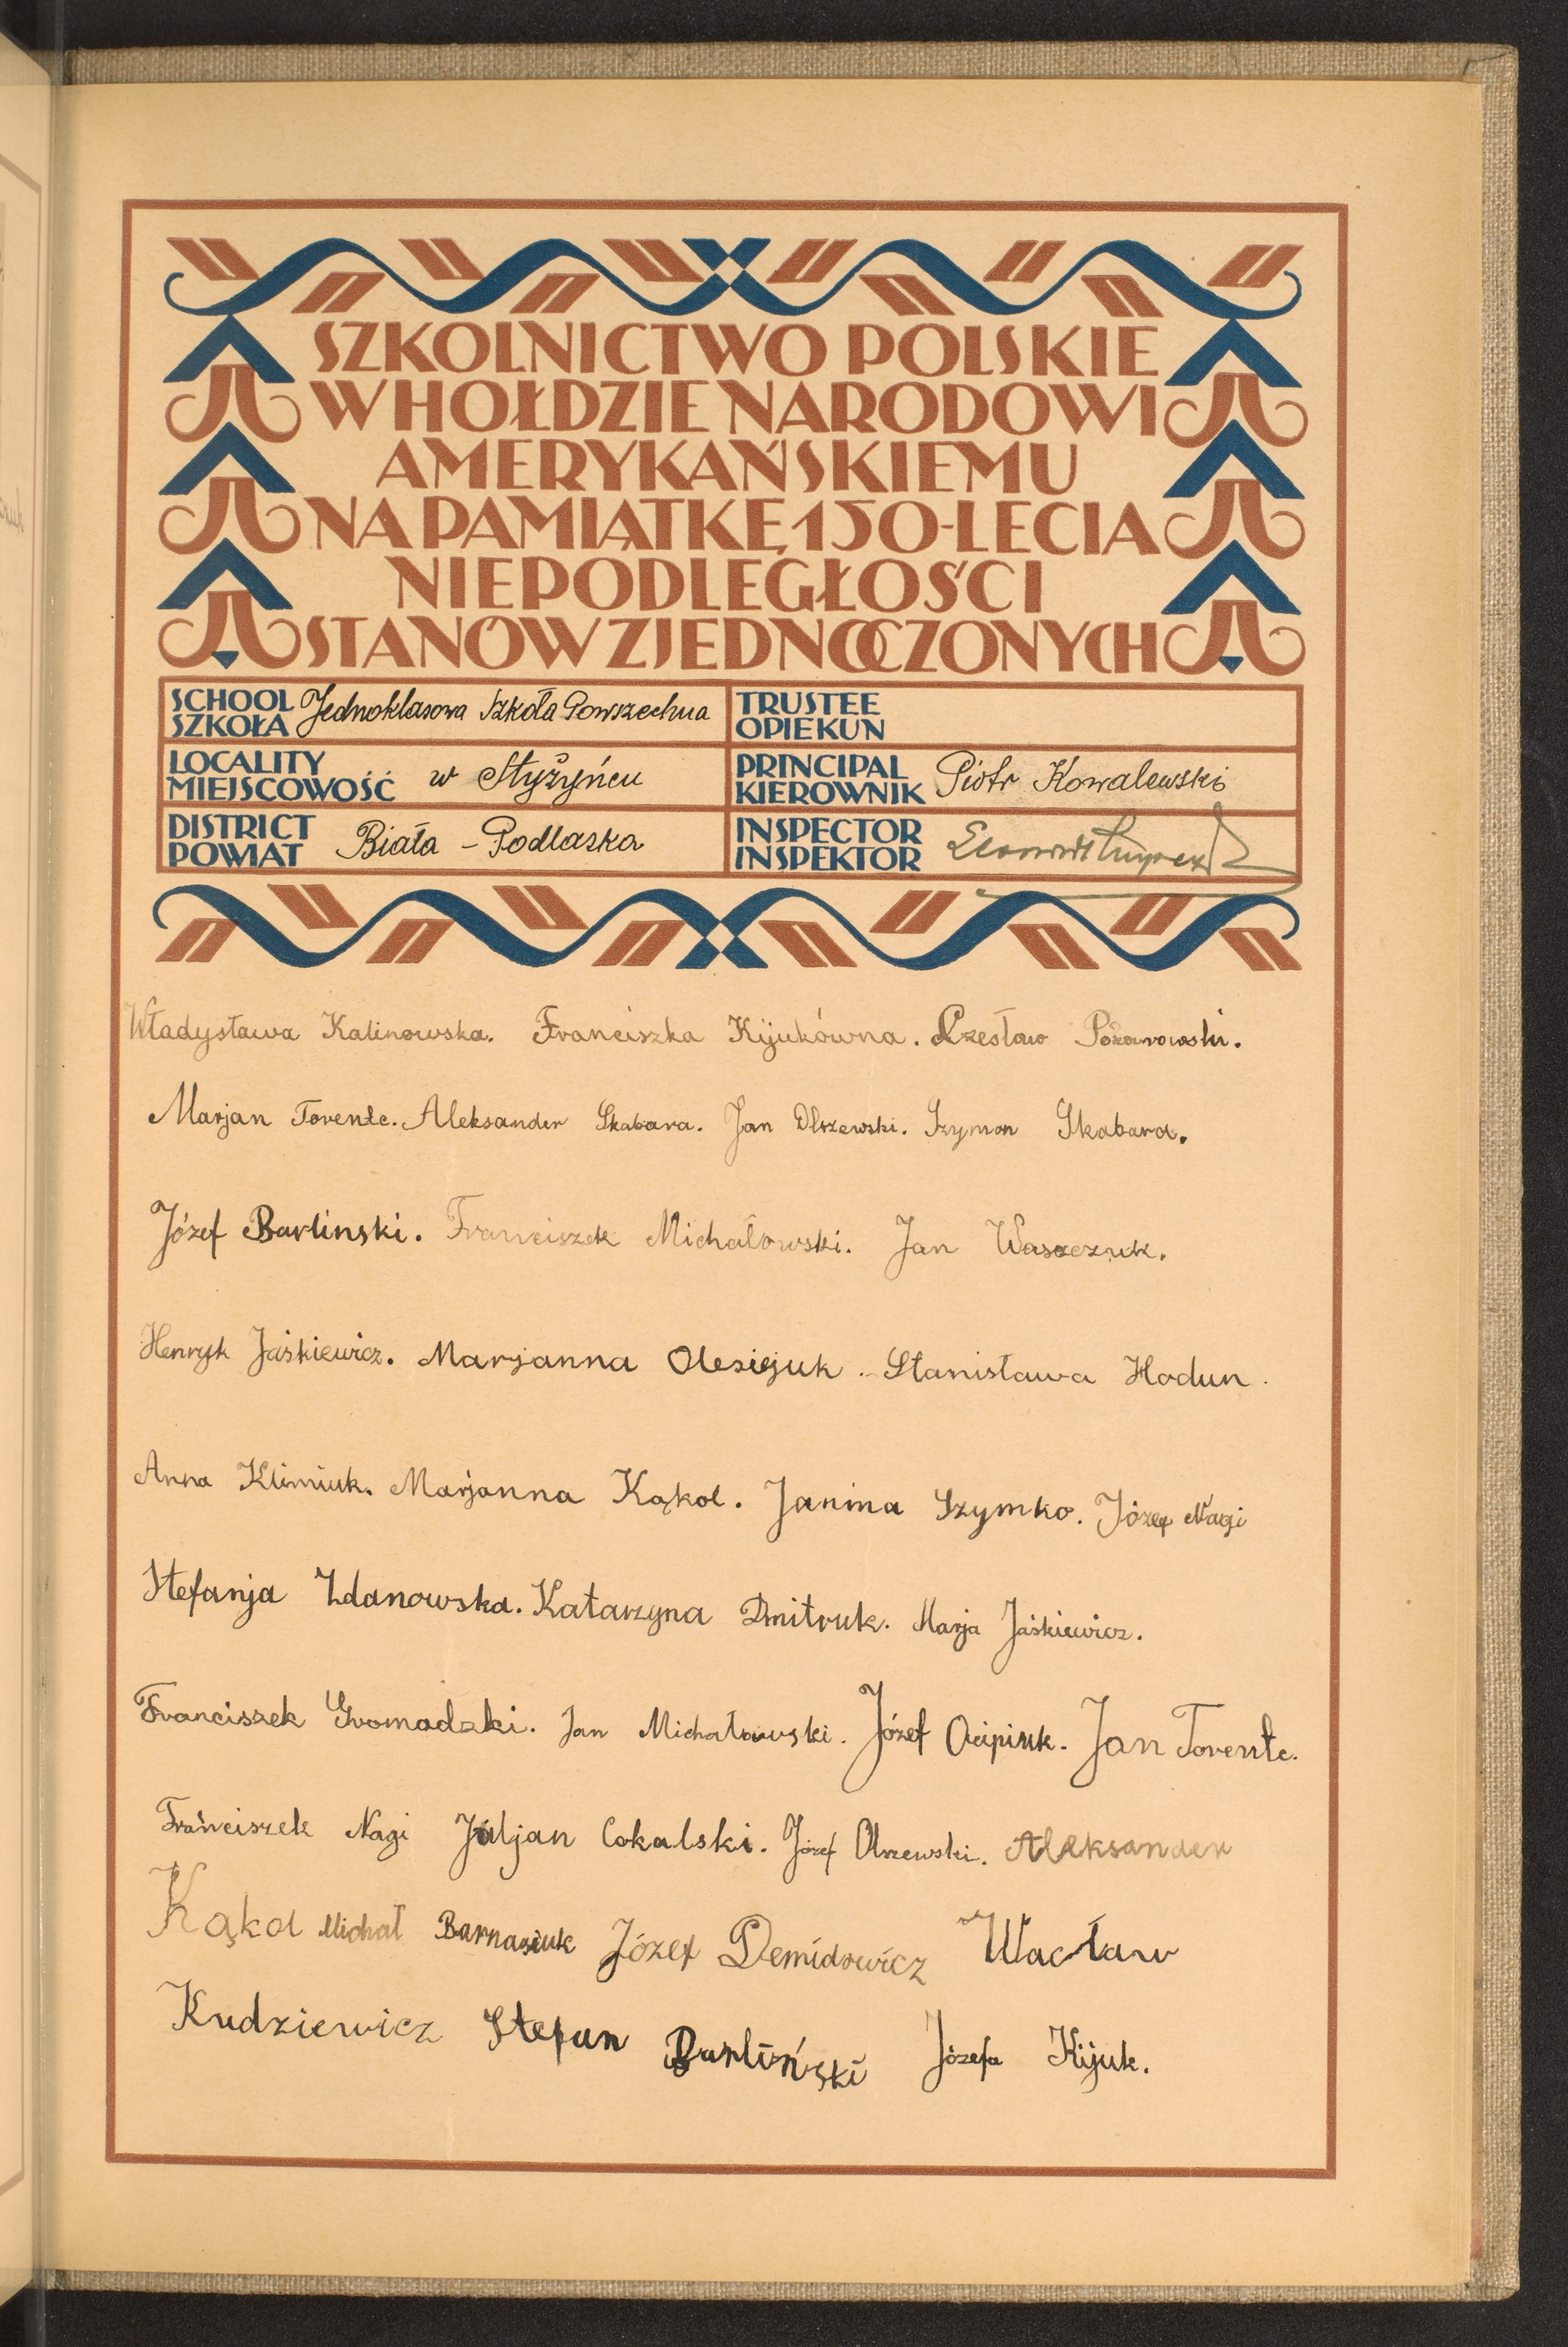 SZKOLNICTWO POLSKIE
W HOŁDZIE NARODOWI
AMERYKAŃSKIEMU
NA PAMIĄTKĘ 150-LECIA
NIEPODLEGŁOŚCI
STANÓW ZJEDNOCZONYCH
SCHOOL
SZKOŁA Jednoklasowa Szkoła Powszechna
TRUSTEE
OPIEKUN
LOCALITY
MIEJSCOWOŚĆ w Styżyńcu
PRINCIPAL
KIEROWNIK Piotr Kowalewski
DISTRICT
POWIAT Biała - Podlaska
INSPECTOR
INSPEKTOR
Władysława Kalinowska. Franciszka Kijukówna. Czesław Pożarowski.
Marjan Torente. Aleksander Skabara. Jan Olszewski. Szymon Skabara.
Józef Barlinski. Franciszek Michałowski. Jan Waszczuk.
Henryk Jaśkiewicz. Marjanna Olesiejuk. Stanisława Hodun.
Anna Klimiuk. Marjanna Kąkol. Janina Szymko. Józef Nagi
Stefanja Zdanowska. Katarzyna Dmitruk. Marja Jaśkiewicz.
Franciszek Gromadzki. Jan Michałowski. Józef Ocipiuk. Jan Torente.
Franciszek Nagi Juljan Cokalski. Józef Olszewski. Aleksander
Kąkol Michał Barnasiuk Józef Demidowicz Wacław
Kudziewicz Stefan Barliński Józefa Kijuk.